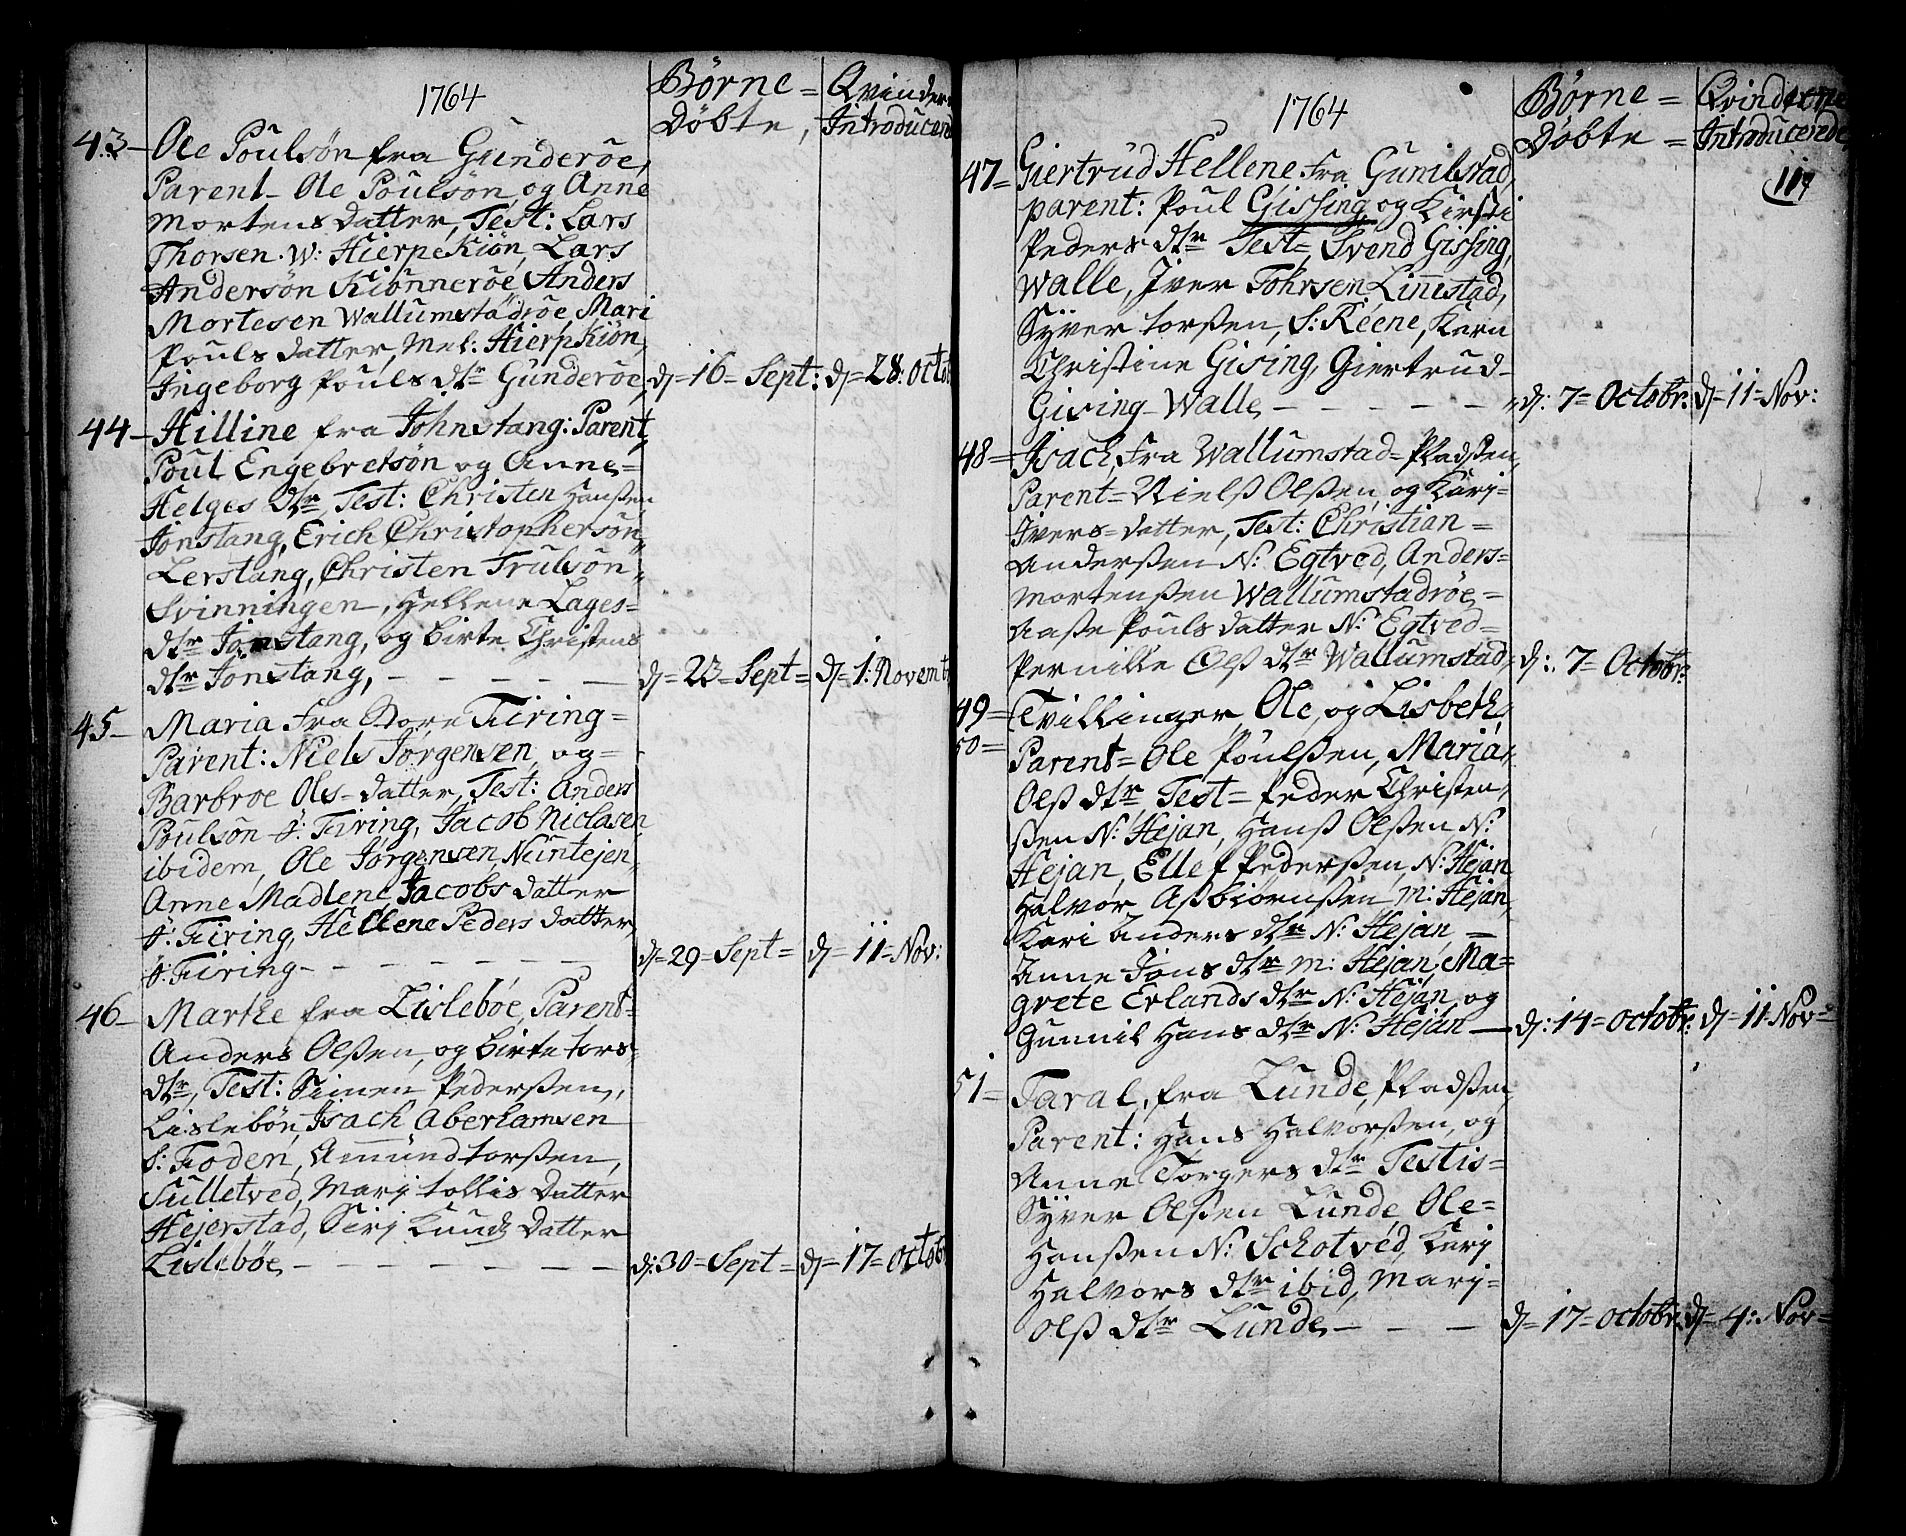 1764
Børne = Qvinder
Døbte, Introducerd
43 - Ole Poulsøn fra Gunderøe,
Parent - Ole Poulsøn, og Anne
Mortens Datter, Test: Lars
Thorsen. W: Hierpekiøn, Lars
Andersøn Kiønnerøe Anders
Mortesen Wallumstadrøe, Mari
Pouls Datter, Mel: Hierpkiøn,
Ingeborg Pouls dtr Gunderøe, d= 16 = Sept: d= 28: Octob
44 - Hilline fra Johnstang: Parent,
Poul Engebretsøn og Anne=
Helges dtr, Test: Christen Hanßen
Jonstang, Erich Christophersøn,
Lerstang, Christen Trulsøn
Svinningen, Hellene Lages=
dtr Jonstang, og Birte Christens
dtr Jonstang, - - - - - d= 23 = Sept = d= 1: Novemb
45 - Maria fra Tiring=
Parent: Niels Jørgensen, og=
Barbroe Ols = Datter, Test: Anders
Poulsøn Ø: Tiring, Jacob Niclasen
ibidem, Ole Jørgensen Nuntejen,
Anne Madlene Jacobs Datter
Ø: Tiring, Hellene Peders Datter,
Ø: Tiring - - - - - - d= 29 = Sept = d= 11 = Nov:
46 - Marthe fra Lislebøe, Parent=
Anders Olßen, og Birte tors=
dtr, Test: Simen Pederßen,
Lislebøn, Isach Aberhamsen
S: Foden, Amund torßen,
Sulletved, Mari tollis Datter
Hejerstad, Siri Knuds Datter
Lislebøe, - - - - - - - d: 30 = Sept = d= 17 = Octob
1764
Børne = Qvinderne
Døbte = Introducerede
119
47 = Giertrud Hellene fra Gunilstad,
parent: Poul Gissing, og Kirsti
Peders dtr Test =, Svend Gissing,
Walle, Iver Tohrsen Linnestad,
Syver torßen, S: Reene, Karn
Christine Gising, Giertrud =
Gising = Walle, - - - - - d: 7 = Octobr: d= 11 = Nov:
48 = Isach, fra Wallumstad = Pladßen,
Parent = Nielß Olßen, og Kari =
Ivers = Datter, Test: Christian =
Anderßen N: Egtved, Anders =
Mortenßen Wallumstadrøe, =
Aaße Pouls Datter N: Egtved =
Pernille Olß dtr Wallumstad, d: 7 = Octobr:
49 = Tvillinger, Ole, og Lisbeth,
50 = Parent = Ole Poulßen, Maria,
Olß dtr Test = Peder Christen,
ßen N: Hejan, Hanß Olßen N:
Hejan, Ellef Pederßen, N: Hejan
Halvor Aßbiørnßen, M: Hejan,
Kari Anders dtr N: Hejan, -
Anne Jons dtr M: Hejan, Ma=
grete Erlands dtr N: Hejan, og
Gunnil Hans dtr N: Hejan - d: 14 = Octobr: d= 11 = Nov =
51 = Taral, fra Lunde, Pladßen,
Parent: Hans Halvorßen, og
Anne Torgers dtr Testis =
Syver Olßen Lunde, Ole =
Hanßen N: Schotved, Kari
Halvors dtr ibid, Mari =
Olß dtr Lunde, - - - d= 17 = Octobr: d= 4: Nov =